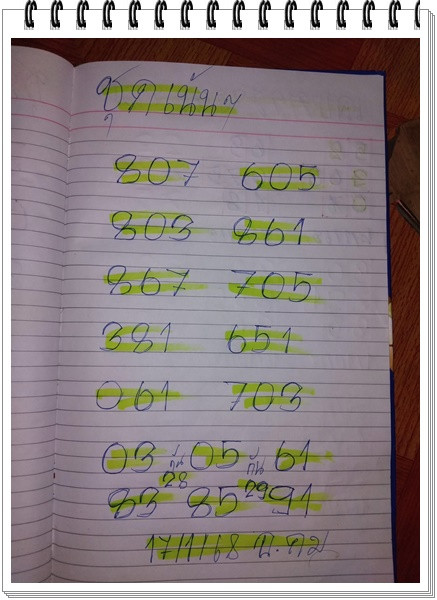 ชุดเน้นๆ
807 605
803 861
867 705
381 651
061 703
03 กัน 05 กัน 61
28 29
83 85 91
17/1/68